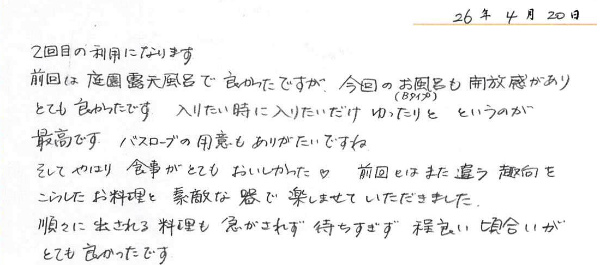 26年4月20日
2回目の利用になります
前回は庭園露天風呂で良かったですが、今回のお風呂も開放感があり
(Bタイプ)
とても良かったです 入りたい時に入りたいだけ ゆったりと というのが
最高です. バスローブの用意もありがたいですね
そしてやはり 食事がとてもおいしかった♡ 前回とはまた違う趣向を
こらしたお料理と 素敵な器で楽しませていただきました.
順々に出される料理も 急かされず 待ちすぎず 程良い頃合いが
とても良かったです